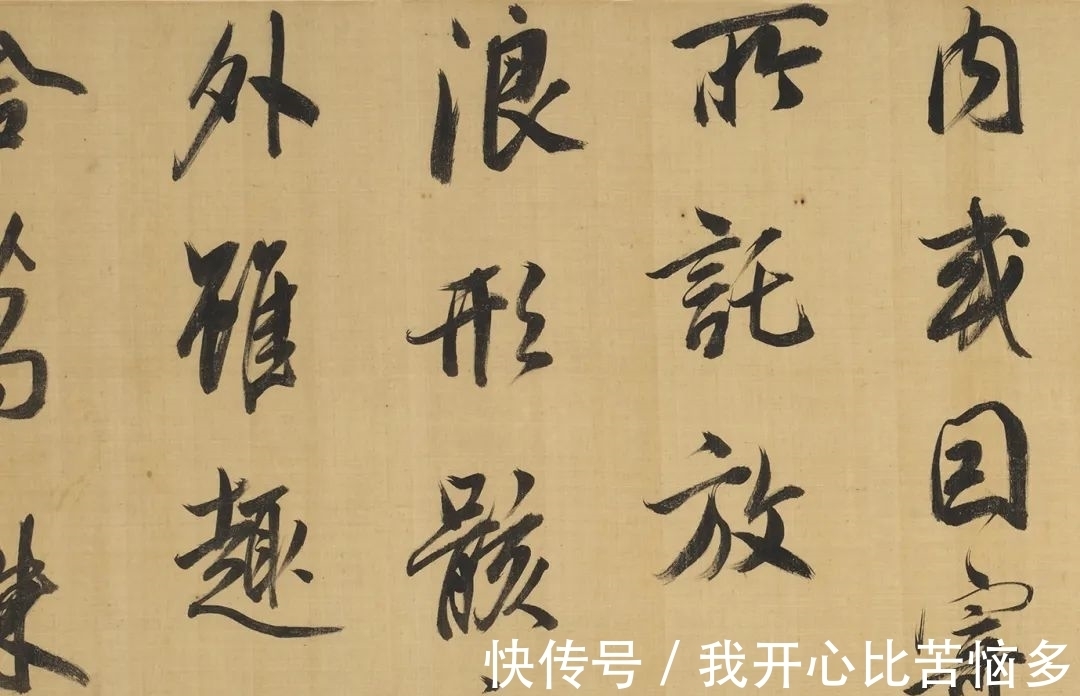 内或因
所託放
浪形骸
外雖趣
快传号 / 我开心比苦恼多